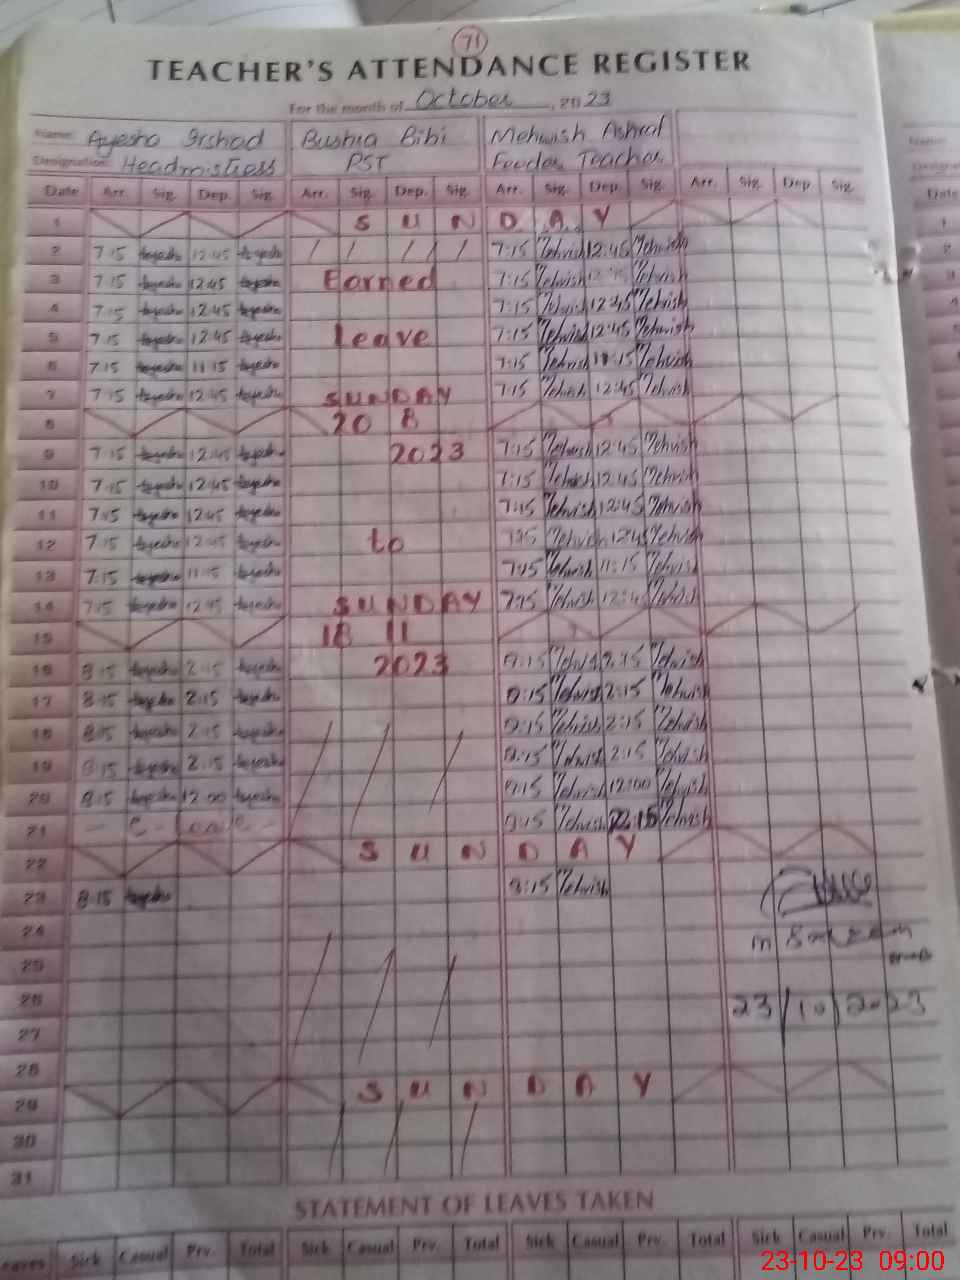 71
TEACHER'S ATTENDANCE REGISTER
For the month of October, 2023
Name: Ayesha Irshad Bushra Bibi Mehwish Ashraf
Designation: Headmistress PST Feeder Teacher
Date Arr. Sig. Dep. Sig. Arr. Sig. Dep. Sig. Arr. Sig. Dep. Sig. Arr. Sig. Dep Sig.
1 S U N D A Y
2 7:15 Ayesha 12:45 Ayesha 7:15 Mehwish 12:45 Mehwish
3 7:15 Ayesha 12:45 Ayesha Earned 7:15 Mehwish 12:45 Mehwish
4 7:15 Ayesha 12:45 Ayesha 7:15 Mehwish 12:45 Mehwish
5 7:15 Ayesha 12:45 Ayesha Leave 7:15 Mehwish 12:45 Mehwish
6 7:15 Ayesha 11:15 Ayesha 7:15 Mehwish 11:15 Mehwish
7 7:15 Ayesha 12:45 Ayesha SUNDAY 7:15 Mehwish 12:45 Mehwish
8 20 8
9 7:15 Ayesha 12:45 Ayesha 2023 7:15 Mehwish 12:45 Mehwish
10 7:15 Ayesha 12:45 Ayesha 7:15 Mehwish 12:45 Mehwish
11 7:15 Ayesha 12:45 Ayesha 7:15 Mehwish 12:45 Mehwish
12 7:15 Ayesha 12:45 Ayesha to 7:15 Mehwish 12:45 Mehwish
13 7:15 Ayesha 11:15 Ayesha 7:15 Mehwish 11:15 Mehwish
14 7:15 Ayesha 12:45 Ayesha SUNDAY 7:15 Mehwish 12:45 Mehwish
15 18 11
16 8:15 Ayesha 2:15 Ayesha 2023 8:15 Mehwish 2:15 Mehwish
17 8:15 Ayesha 2:15 Ayesha 8:15 Mehwish 2:15 Mehwish
18 8:15 Ayesha 2:15 Ayesha 8:15 Mehwish 2:15 Mehwish
19 8:15 Ayesha 2:15 Ayesha 8:15 Mehwish 2:15 Mehwish
20 8:15 Ayesha 12:00 Ayesha 8:15 Mehwish 12:00 Mehwish
21 - C - Leave - 8:15 Mehwish 2:15 Mehwish
22 S U N D A Y
23 8:15 Ayesha 8:15 Mehwish
24
25
26 23/10/2023
27
28
29 S U N D A Y
30
31
STATEMENT OF LEAVES TAKEN
Leaves Sick Casual Prv. Total Sick Casual Prv. Total Sick Casual Prv. Total Sick Casual Prv. Total
Name
Date
1
2
3
23-10-23 09:00